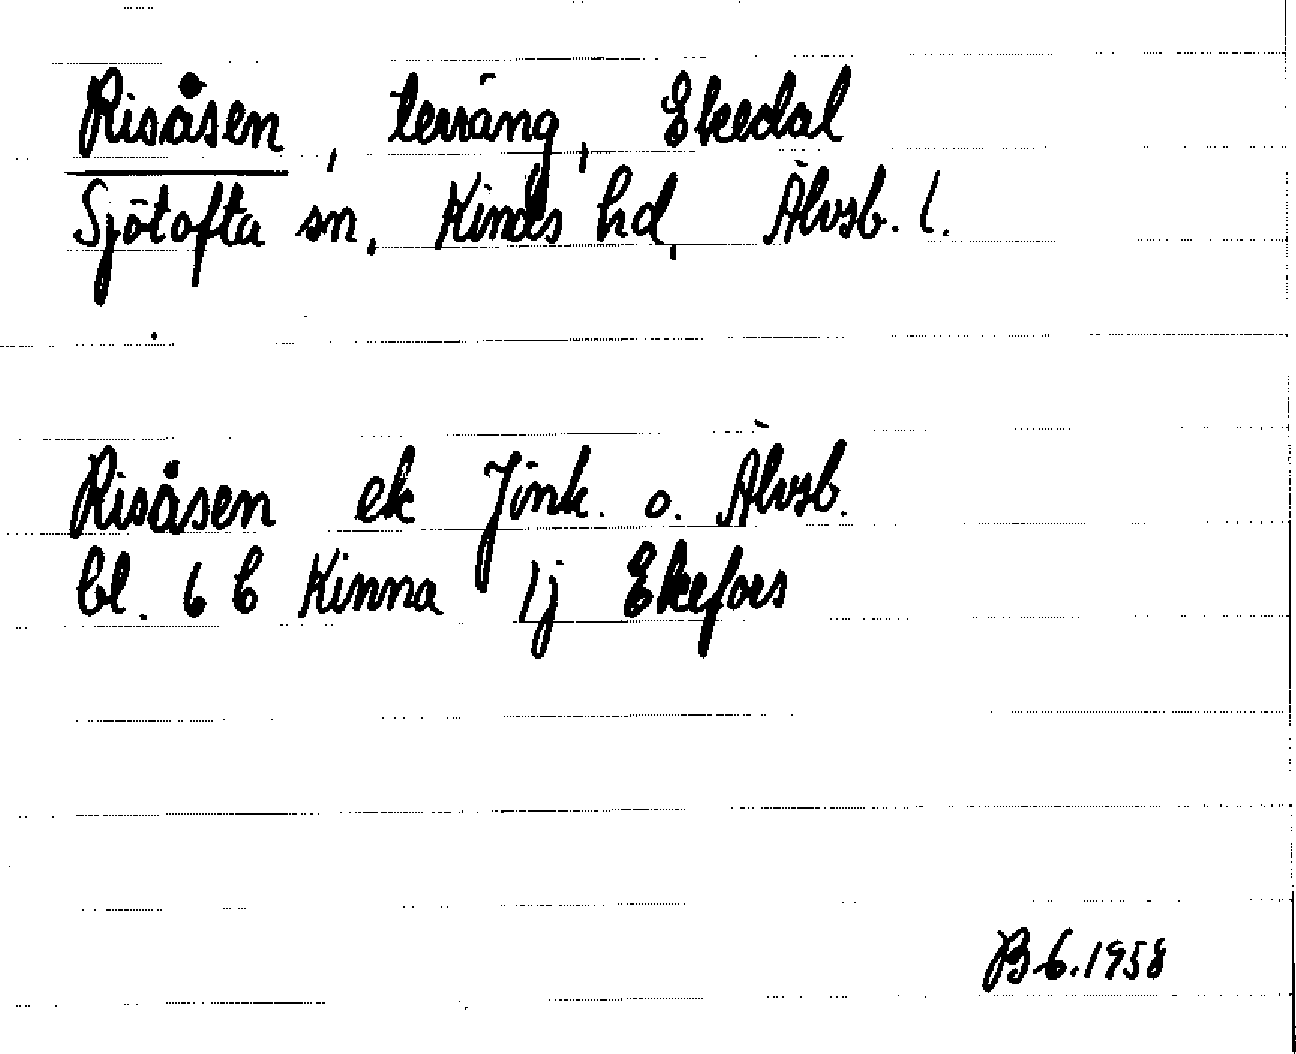 Risåsen, terräng, Ekedal
Sjötofta sn, Kinds hd, Älvsb. l.
Risåsen ek Jönk. o. Älvsb.
bl. 6 C Kinna 1j Ekefors
B G. 1958